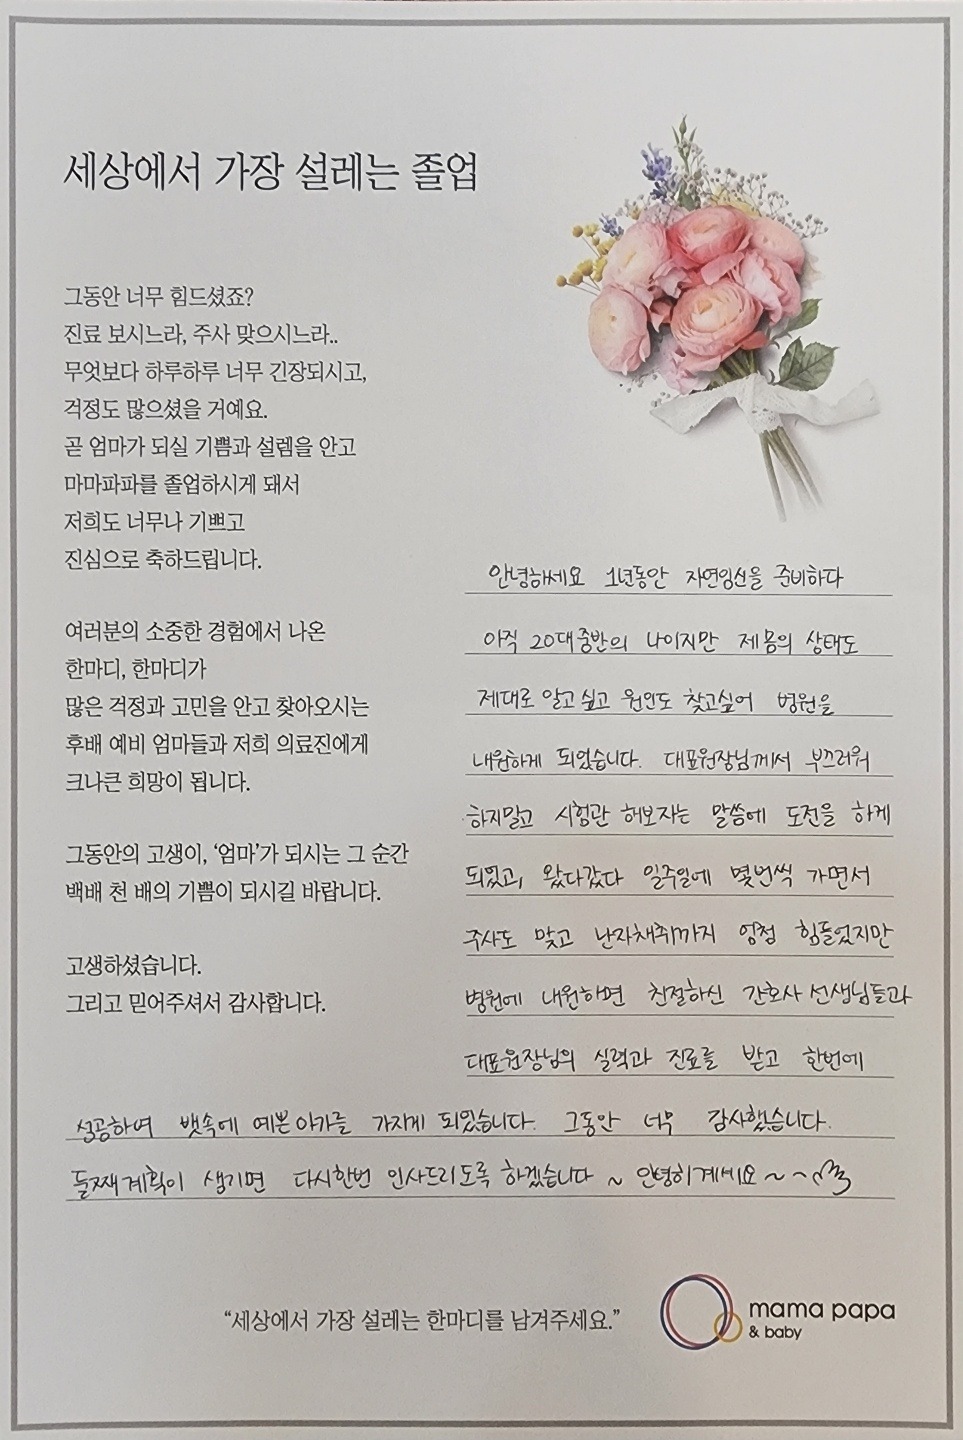 세상에서 가장 설레는 졸업
그동안 너무 힘드셨죠?
진료 보시느라, 주사 맞으시느라..
무엇보다 하루하루 너무 긴장되시고,
걱정도 많으셨을 거예요.
곧 엄마가 되실 기쁨과 설렘을 안고
마마파파를 졸업하시게 돼서
저희도 너무나 기쁘고
진심으로 축하드립니다.
여러분의 소중한 경험에서 나온
한마디, 한마디가
많은 걱정과 고민을 안고 찾아오시는
후배 예비 엄마들과 저희 의료진에게
크나큰 희망이 됩니다.
그동안의 고생이, ‘엄마’가 되시는 그 순간
백배 천 배의 기쁨이 되시길 바랍니다.
고생하셨습니다.
그리고 믿어주셔서 감사합니다.
안녕하세요 1년동안 자연임신을 준비하다
아직 20대중반의 나이지만 제몸의 상태도
제대로 알고싶고 원인도 찾고싶어 병원을
내원하게 되었습니다. 대표원장님께서 부끄러워
하지말고 시험관 해보자는 말씀에 도전을 하게
되었고, 왔다갔다 일주일에 몇번씩 가면서
주사도 맞고 난자채취까지 엄청 힘들었지만
병원에 내원하면 친절하신 간호사 선생님들과
대표원장님의 실력과 진료를 받고 한번에
성공하여 뱃속에 예쁜아가를 가지게 되었습니다. 그동안 너무 감사했습니다.
둘째계획이 생기면 다시한번 인사드리도록 하겠습니다 ~ 안녕히계세요 ~ ~
“세상에서 가장 설레는 한마디를 남겨주세요.”
mama papa
& baby